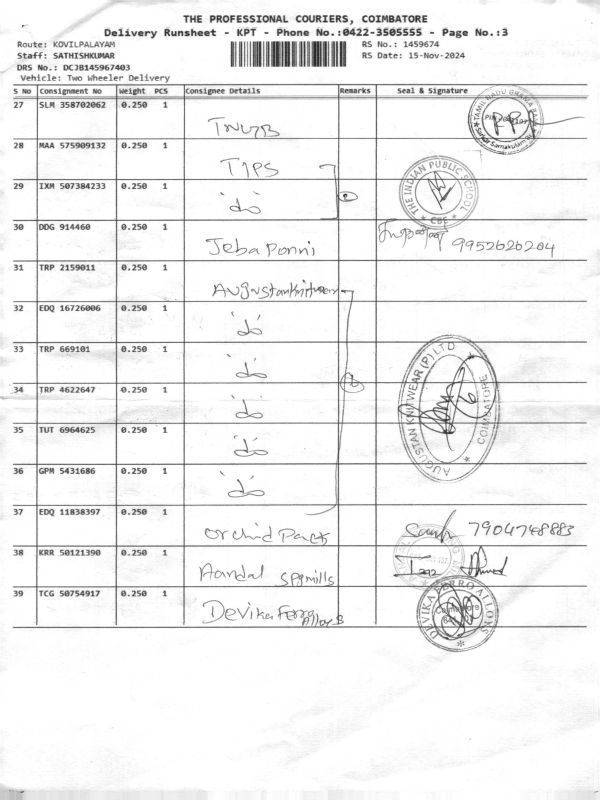 THE PROFESSIONAL COURIERS, COIMBATORE
Delivery Runsheet - KPT - Phone No.:0422-3505555 - Page No.:3
Route: KOVILPALAYAM RS No.: 1459674
Staff: SATHISHKUMAR RS Date: 15-Nov-2024
DRS No.: DCJB145967403
Vehicle: Two Wheeler Delivery
S No Consignment No Weight PCS Consignee Details Remarks Seal & Signature
27 SLM 358702062 0.250 1
28 MAA 575909132 0.250 1 TIPS THE INDIAN PUBLIC SCHOOL * CBE *
29 IXM 507384233 0.250 1 'do'
30 DDG 914460 0.250 1 Jeba Ponni 9952626204
31 TRP 2159011 0.250 1 Augustanknitwear
32 EDQ 16726006 0.250 1 'do'
33 TRP 669101 0.250 1 'do' AUGUSTAN KNITWEAR (P) LTD COIMBATORE
34 TRP 4622647 0.250 1 'do'
35 TUT 6964625 0.250 1 'do'
36 GPM 5431686 0.250 1 'do'
37 EDQ 11838397 0.250 1 Orchid Pack 7904748883
38 KRR 50121390 0.250 1 Aandal spgmills
39 TCG 50754917 0.250 1 Devika Ferro Alloys DEVIKA FERRO ALLOYS Coimbatore